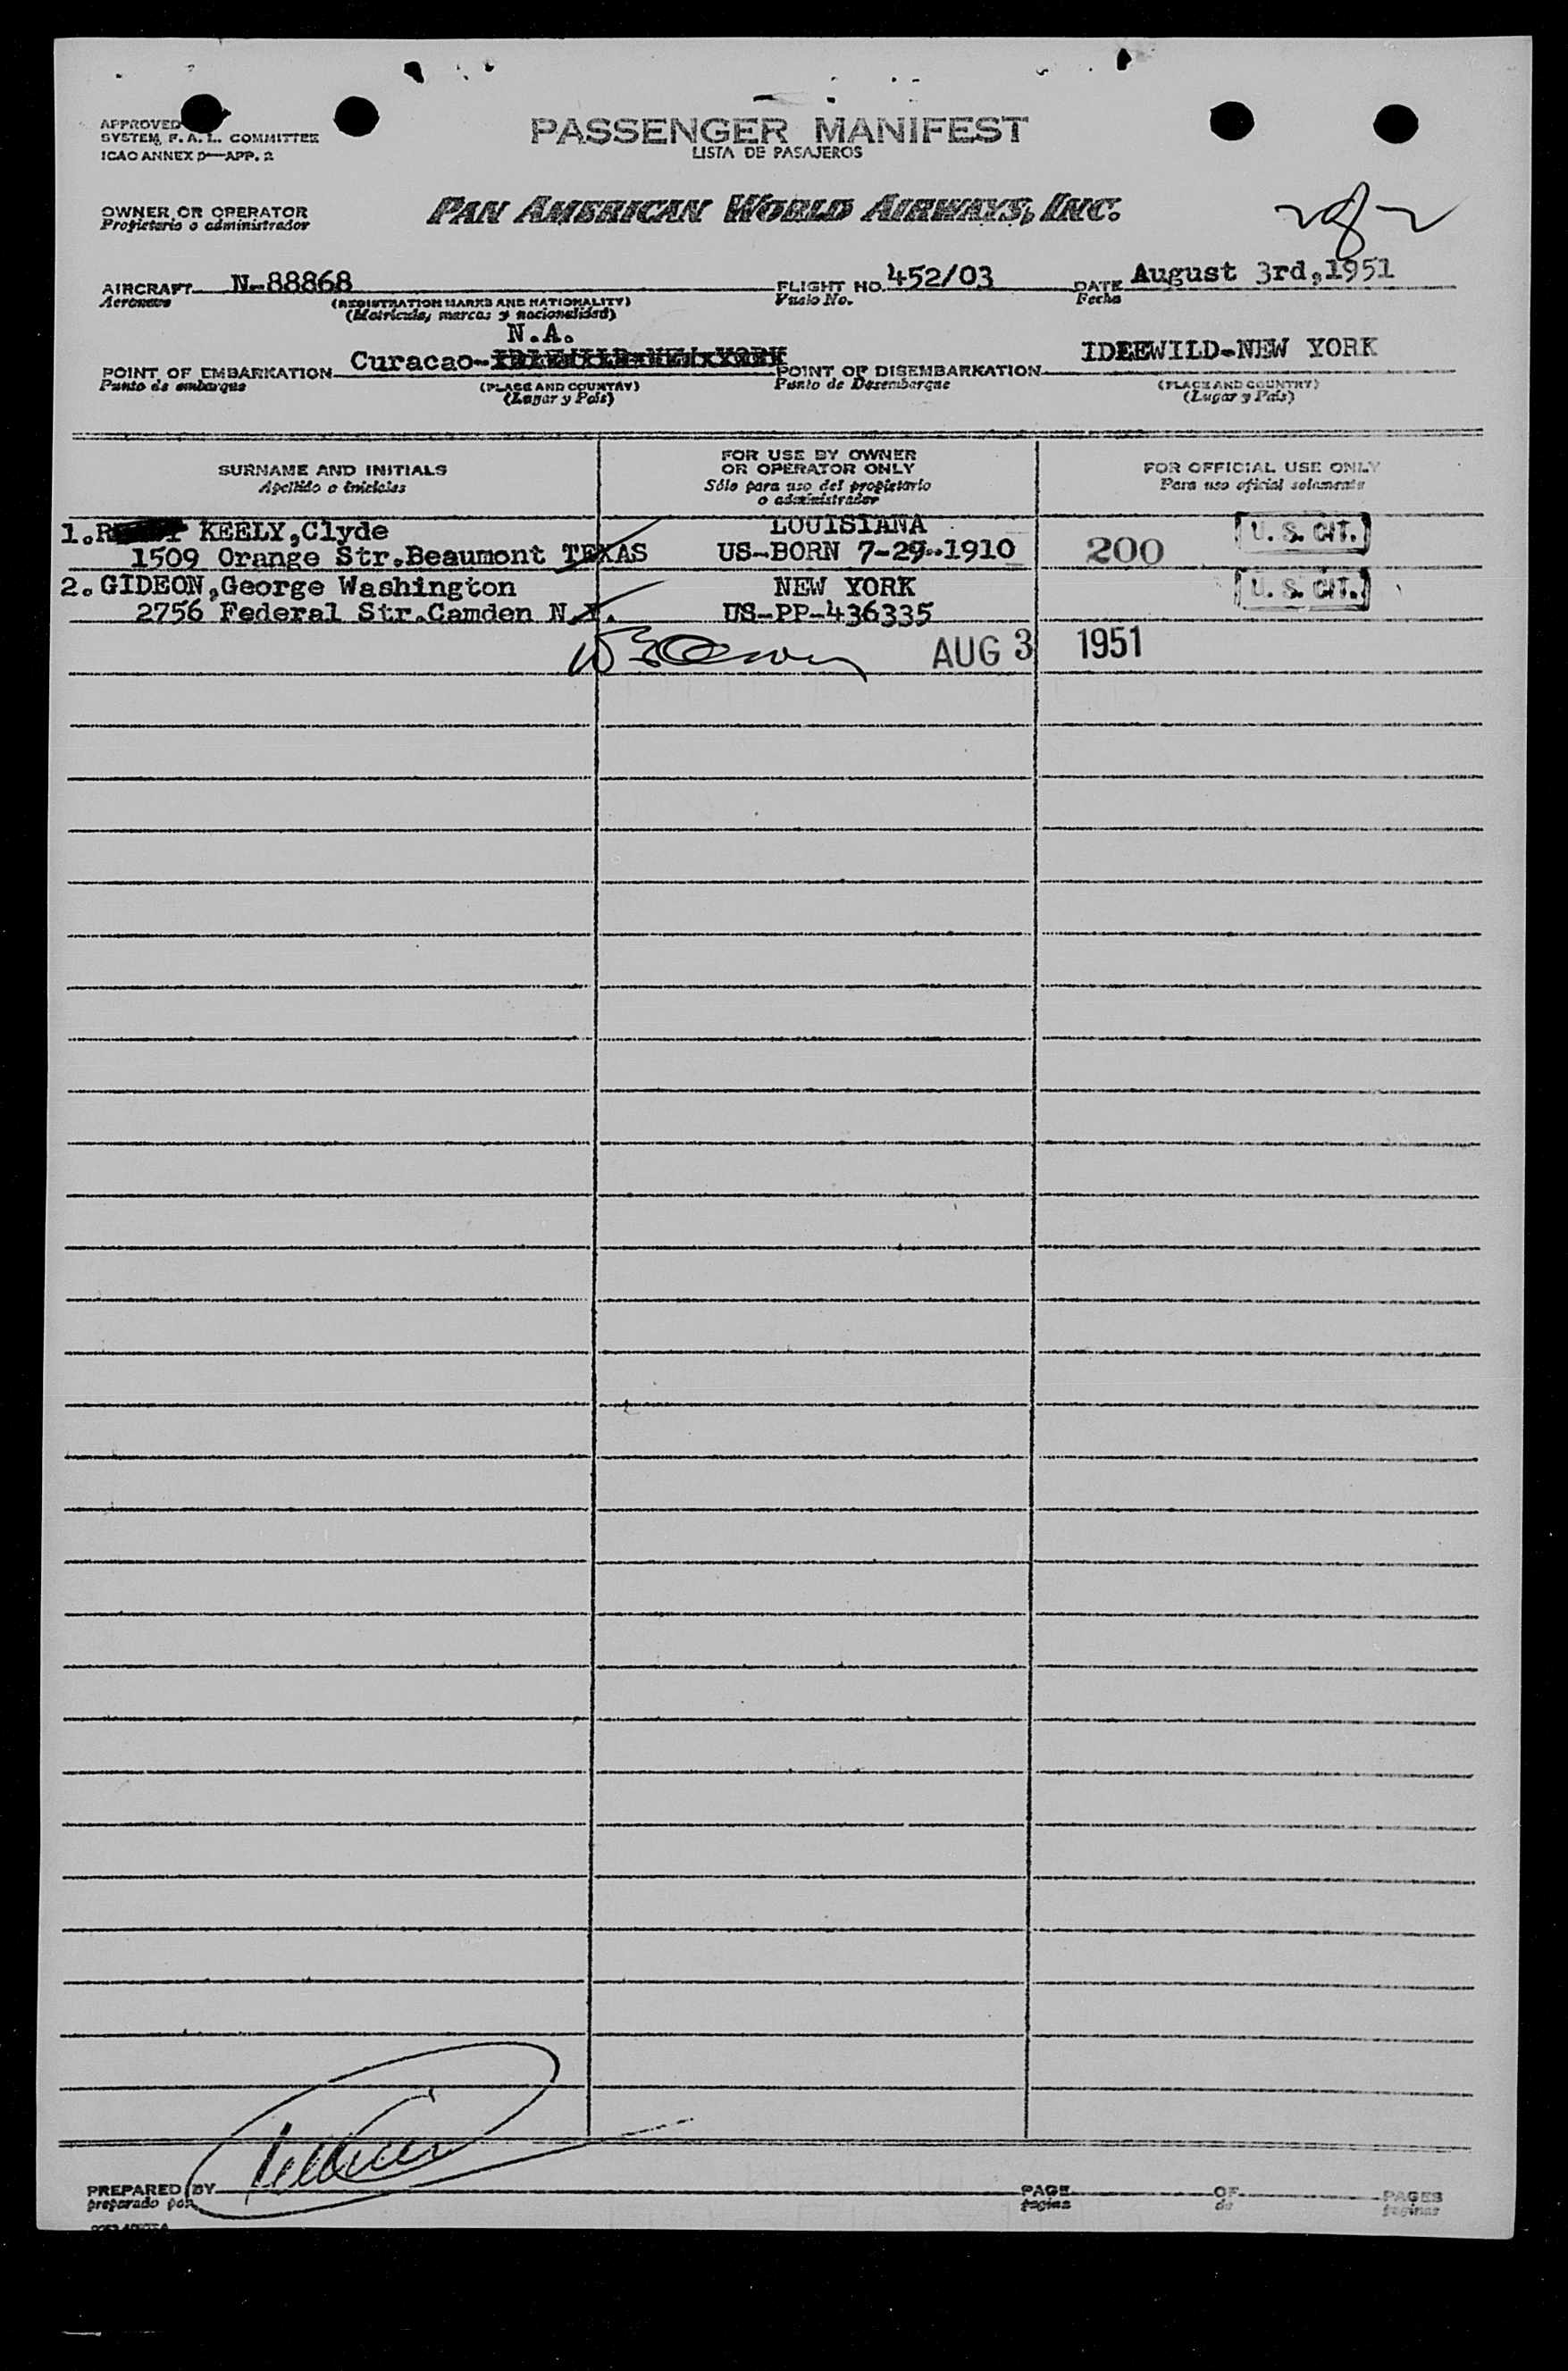 APPROVED
SYSTEM, F. A. L. COMMITTEE
ICAO ANNEX 9—APP. 2
PASSENGER MANIFEST
LISTA DE PASAJEROS
OWNER OR OPERATOR
Propietario o administrador
PAN AMERICAN WORLD AIRWAYS, INC.
AIRCRAFT N-88868 FLIGHT NO. 452/03 DATE August 3rd,1951
Aeronave (REGISTRATION MARKS AND NATIONALITY) Vuelo No. Fecha
(Matrícula, marcas y nacionalidad)
N.A.
POINT OF EMBARKATION Curacao- POINT OF DISEMBARKATION IDLEWILD-NEW YORK
Punto de embarque (PLACE AND COUNTRY) Punto de Desembarque (PLACE AND COUNTRY)
(Lugar y País) (Lugar y País)
SURNAME AND INITIALS
Apellido e iniciales
FOR USE BY OWNER
OR OPERATOR ONLY
Sólo para uso del propietario
o administrador
FOR OFFICIAL USE ONLY
Para uso oficial solamente
1. KEELY,Clyde LOUISIANA U. S. CIT.
1509 Orange Str.Beaumont TEXAS US-BORN 7-29-1910 200
2.GIDEON,George Washington NEW YORK U. S. CIT.
2756 Federal Str.Camden US-PP-436335
AUG 3 1951
PREPARED BY PAGE OF PAGES
preparado por página de páginas